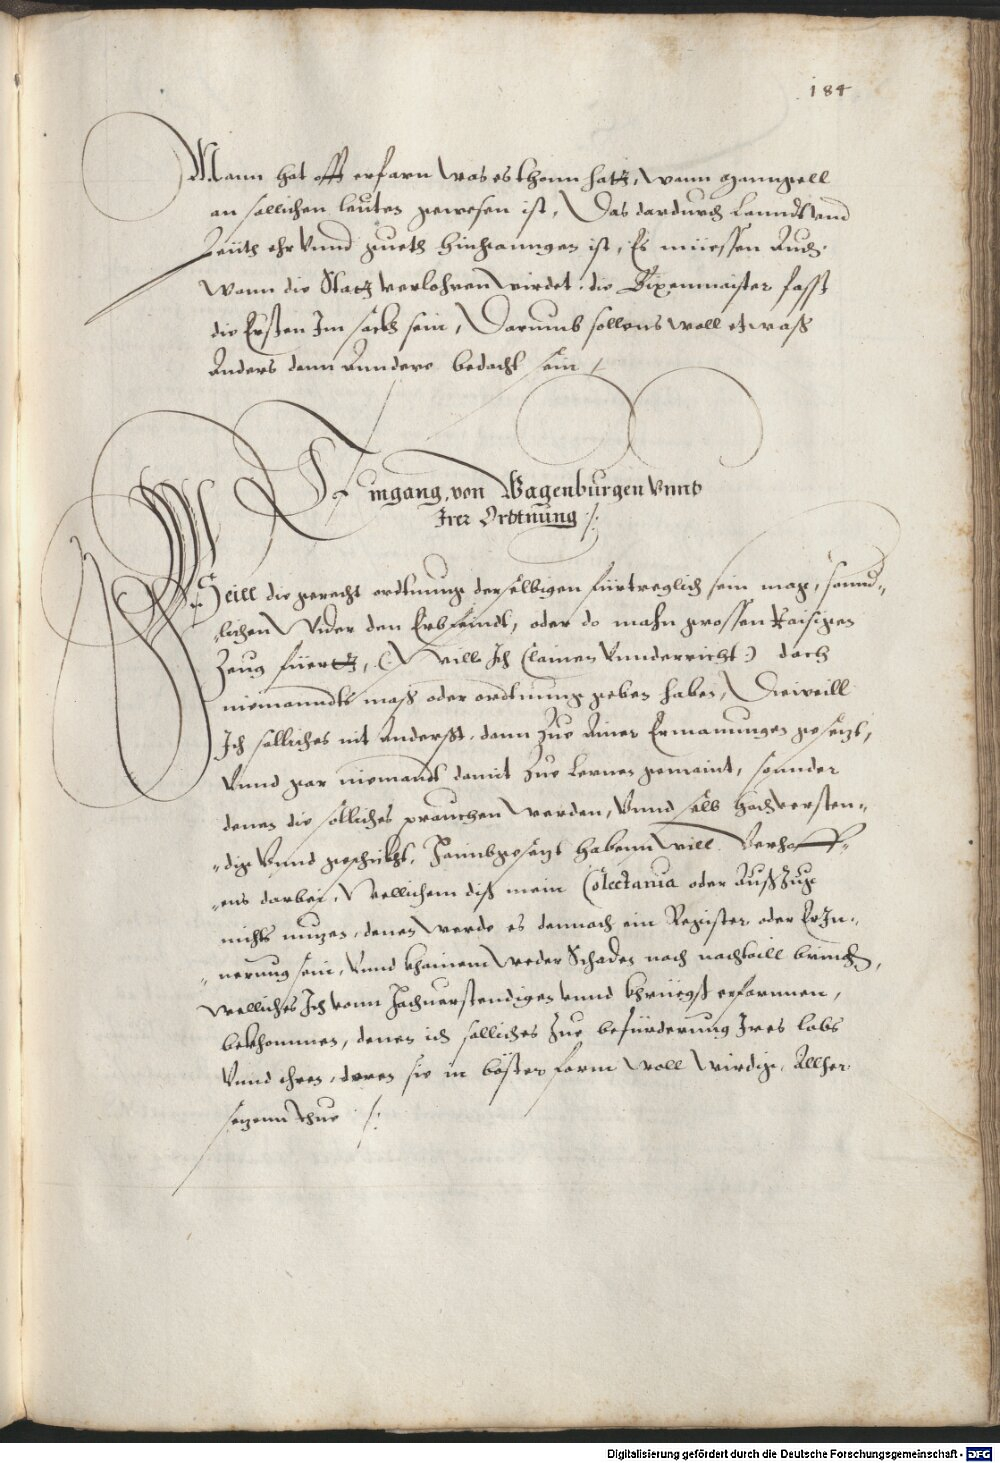 184
Mann hat offt erfarn was es thonn hatt, wann manngell
an sollichen leuten gewesen ist, Das dardurch Lanndt vnnd
Leüth ehr vnnd gueth hinganngen ist, Es müessen Auch
wann die Statt verlohren wirdet die Bixenmaister fasst
die Ersten Im sackh sein, Darumb sollens woll etwaß
Anders dann Anndere bedacht sein /
Eingang, von Wagenburgen Vnnd
Irer Ordtnung /:
Weill die gerecht ordtnung derselbigen fürtreglich sein mag, sonnd-
lichen Wider den Erbfeindt, oder do mahn grossen Raisigen
Zeug füertt, (: Will Ich (clainen Vnnderricht:) doch
niemanndts maß oder ordtnung geben haben, Dieweill
Ich solliches nit Anderst, dann Zue Ainer Ermanungen gesezt,
Vnnd gar niemandt damit Zue Lernen gemaint, sonnder
denen die solliches prauchen werden, Vnnd selb hochversten-
dig Vnnd geschickht, haimbgesezt habenn will. Verhoff-
ens darbei, Wellichem diß mein Colectania oder Außzug
nichts nuzen, denen werde es dennoch ein Register oder ErIn-
nerung sein, Vnnd khainem weder Schaden noch nachtaill bringen,
welliches Ich vonn Hochuerstendigen vnnd khriegß erfarnnen,
bekhommen, denen ich solliches Zue befürderung Ires lobs
Vnnd ehren, deren sie in bester form woll wirdig, Allher
sezenn thue /:
Digitalisierung gefördert durch die Deutsche Forschungsgemeinschaft - DFG